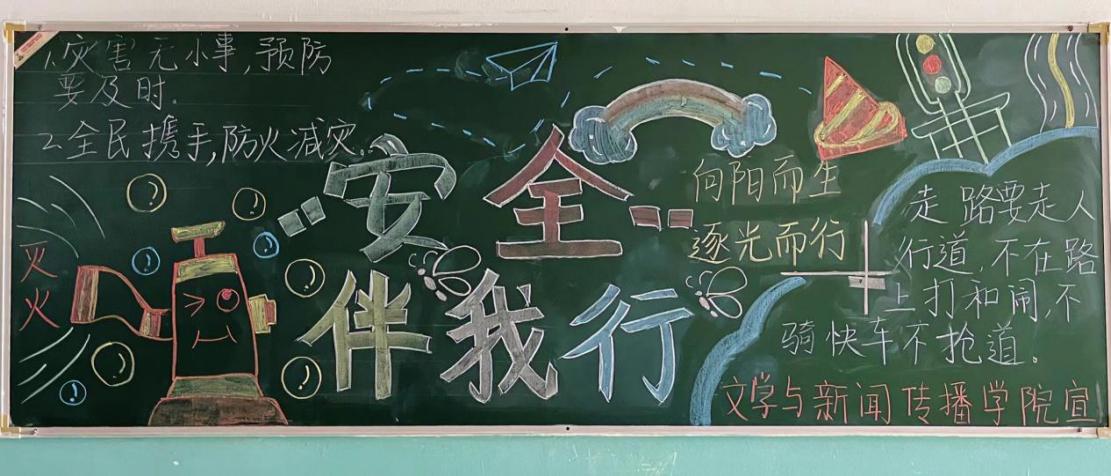 1.灾害无小事,预防
要及时.
2.全民携手,防火减灾.
安全
伴我行
灭
火
向阳而生
逐光而行
走路要走人
行道,不在路
上打和闹,不
骑快车不抢道.
文学与新闻传播学院宣